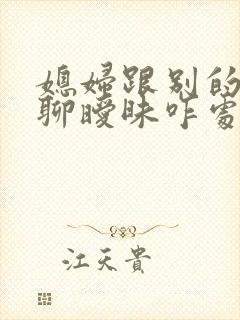 媳婦跟別的
聊曖昧咋處
江天貴